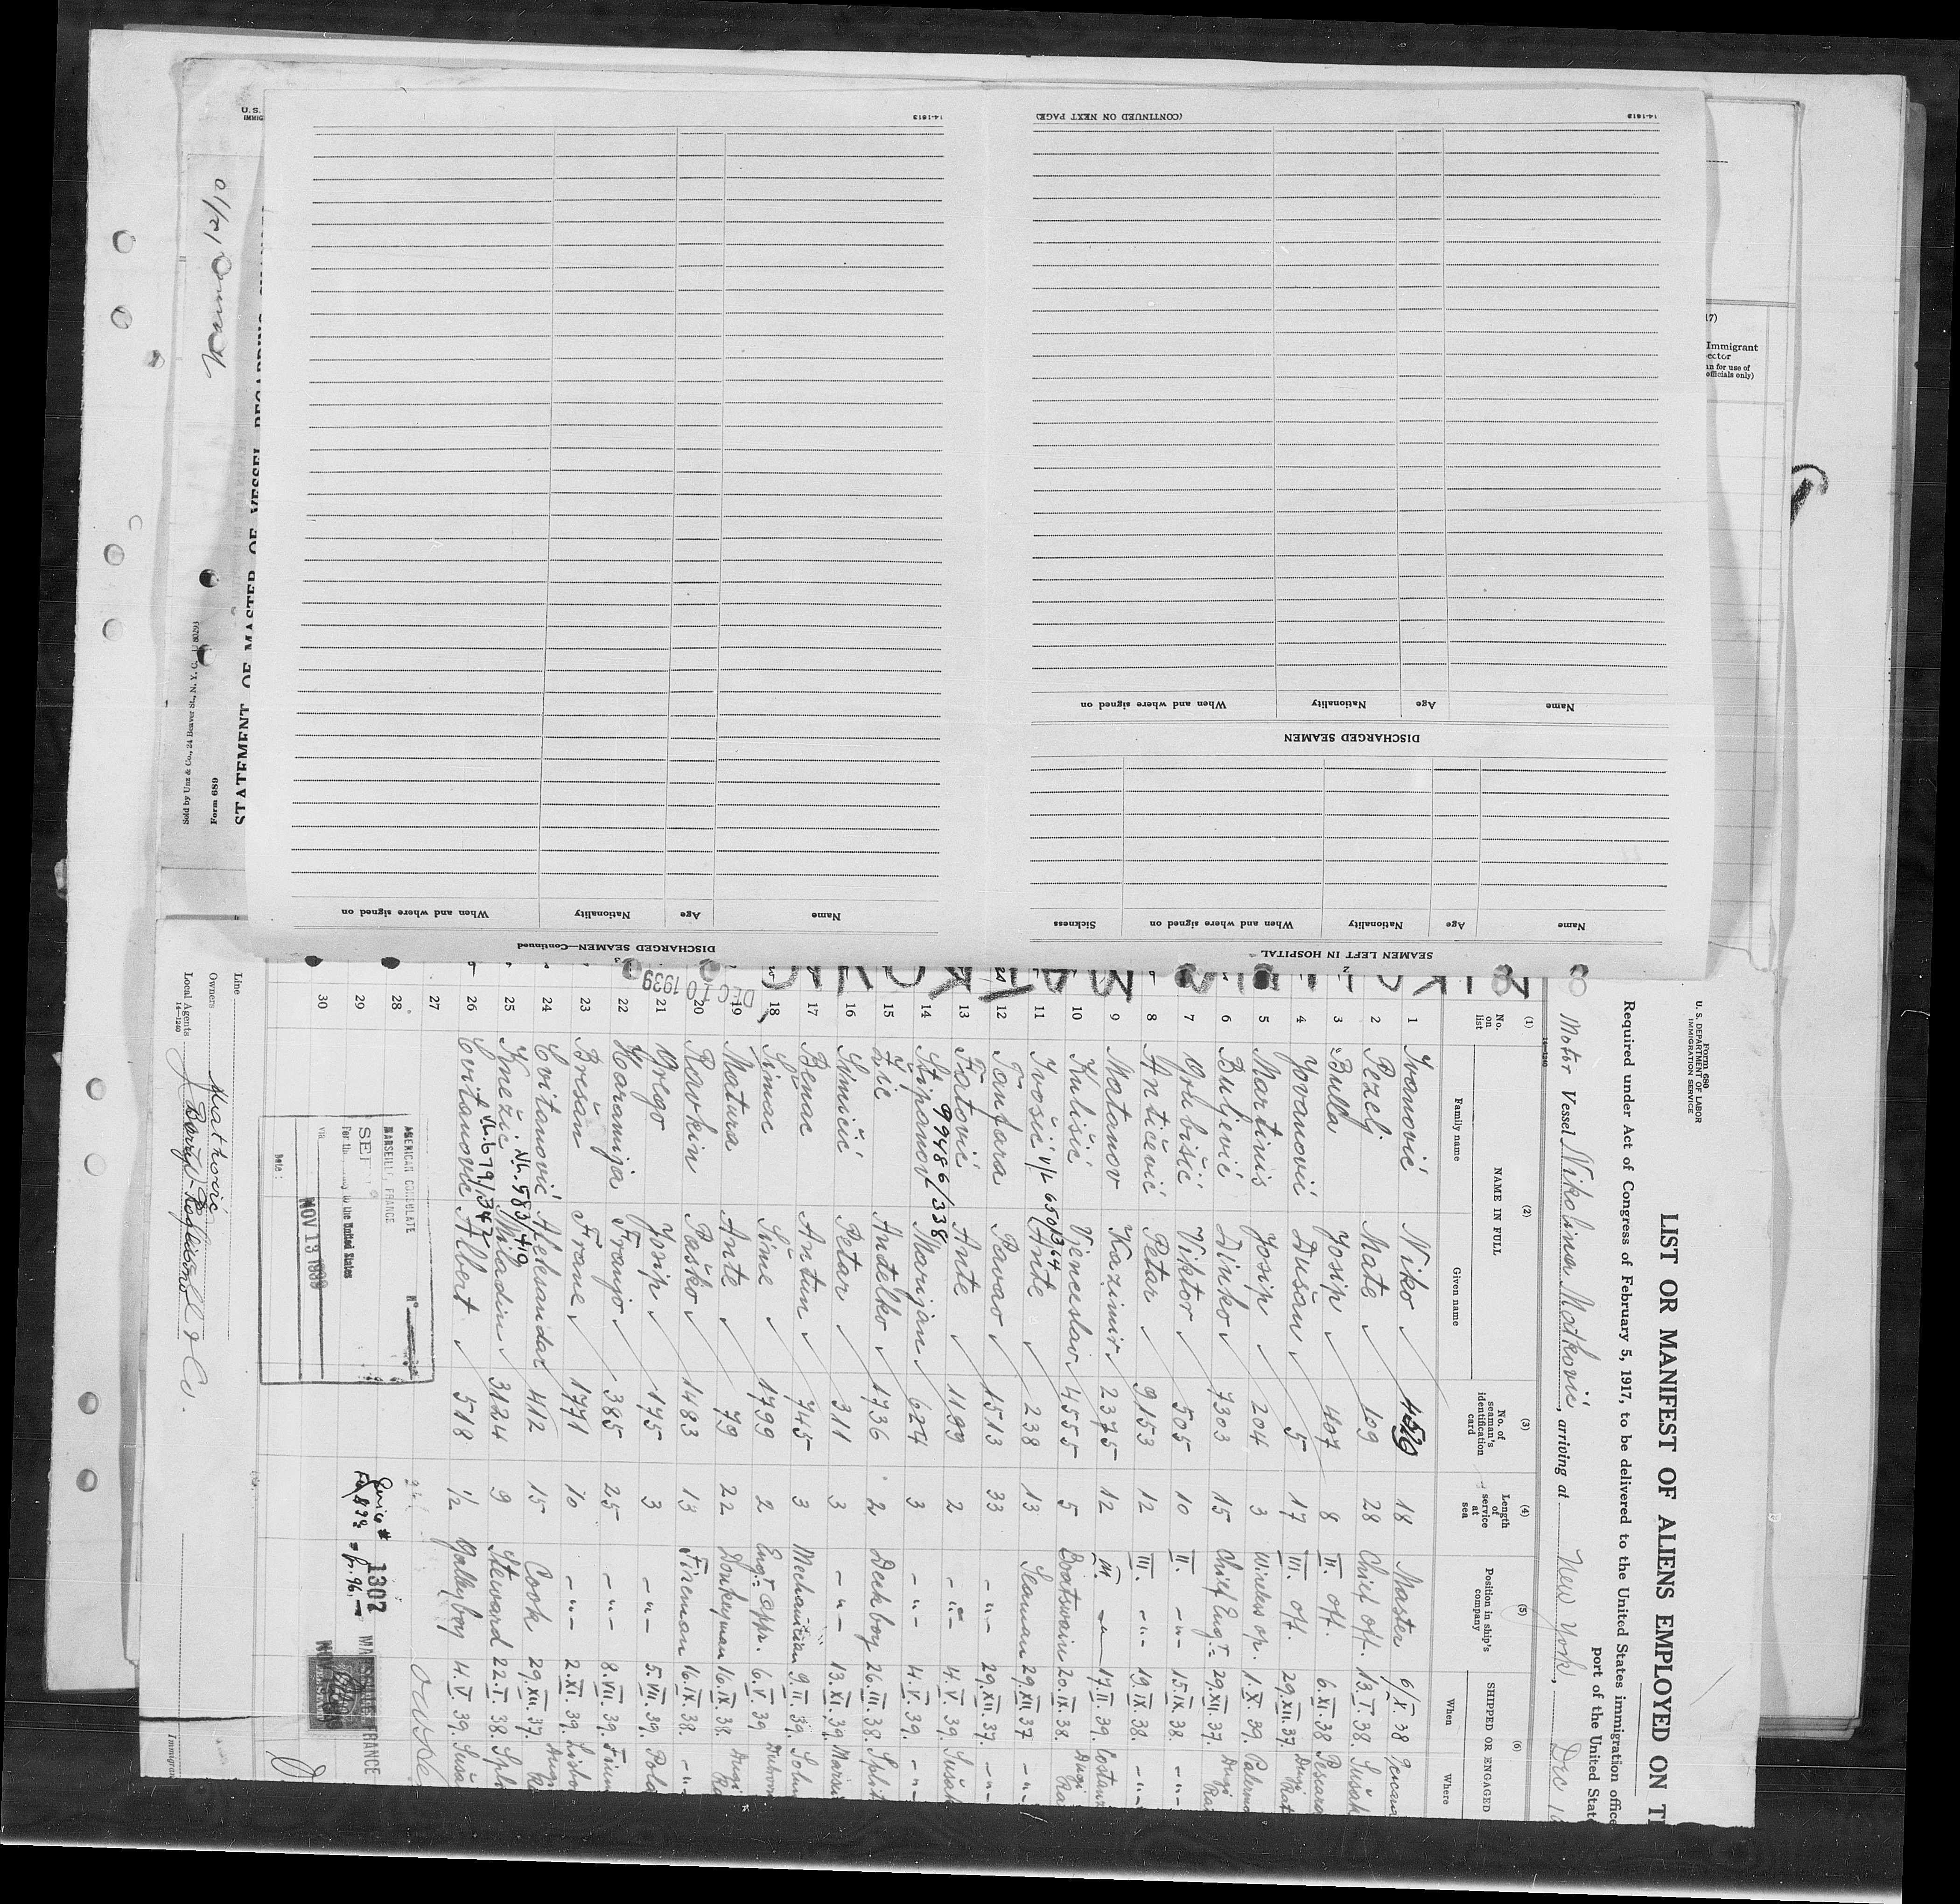 Form 680
U. S. DEPARTMENT OF LABOR
IMMIGRATION SERVICE
LIST OR MANIFEST OF ALIENS EMPLOYED ON T
Required under Act of Congress of February 5, 1917, to be delivered to the United States immigration office
port of the United Stat
Motor Vessel Nikolina Matković, arriving at New York, Dec
(1) (2) (3) (4) (5) (6)
No. on list NAME IN FULL No. of seaman's identification card Length of service at sea Position in ship's company SHIPPED OR ENGAGED
Family name Given name When Where
1 Ivanović Niko 18 Master 6/X. 38
2 Pezelj Mate 109 28 Chief off. 13.I.38. Sušak
3 Bulla Josip 407 8 II. off. 6.XI.38
4 Jovanović Dušan 5 17 III. off. 29.XII.37. Dugi Rat
5 Martinis Josip 204 3 Wireless op. 1.X.39. Palermo
6 Buljević Dinko 7303 15 Chief Eng. 29.XII.37. Dugi Ra
7 Grubišić Viktor 505 10 II. -"- 15.IX.38. -"-
8 Antičević Petar 9153 12 III. -"- 19.IX.38. -"-
9 Matanov Kazimir 2375 12 17.II.39.
10 Kulišić Vjenceslav 4555 5 Boatswain 20.IX.38. Dugi Ra
11 Ivošić V/L 650/364 Ante 238 13 Seaman 29.XII.37 -"-
12 Tanfara Pavao 1513 33 -"- 29.XII.37. -"-
13 Fatović Ante 1199 2 -"- 4.V.39. Sušak
99486/338
14 Stipanov Marijan 624 3 -"- 4.V.39. -"-
15 Žic Anđelko 1736 2 Deck boy 26.III.38. Split
16 Šimičić Petar 311 3 -"- 13.XI.39. Marsei
17 Benac Antun 745 3 Mechanician 9.II.39.
18 Šimac Šime 1799 2 Eng. appr. 6.V.39 Dubrov
19 Matura Ante 79 22 Donkeyman 16.IX.38. Dugi Ra
20 Roʋkin Paško 1483 13 Fireman 16.IX.38. -"-
21 Grego Josip 175 3 -"- 5.VII.39. Pola
22 Haramija Franjo 385 25 -"- 8.VII.39. Fium
23 Brešan Frane 1771 10 -"- 2.XI.39. Lisbo
24 Cvitanović Aleksandar 412 15 Cook 29.XII.37. Dugi Ra
V.L. 583/49
25 Knežić Miladin 3124 9 Steward 22.I.38. Spli
V.L. 679/347
26 Cvitanović Albert 518 1/2 Galley boy 4.V.39. Suša
27
28
29
30
DEC 10 1939
AMERICAN CONSULATE
MARSEILLE, FRANCE
N°
For the United States
via
NOV 13 1939
Date:
Service # 1302
Line
Owners Matković
Local Agents
14-1240
SEAMEN LEFT IN HOSPITAL
Name Age Nationality When and where signed on Sickness
DISCHARGED SEAMEN
Name Age Nationality When and where signed on
14-1613 (CONTINUED ON NEXT PAGE)
3
DISCHARGED SEAMEN—Continued
Name Age Nationality When and where signed on
14-1613
STATEMENT OF MASTER OF VESSEL REGARDING CHANGES
Form 689
U. S.
IMMIG
17)
Immigrant
ector
n for use of
officials only)